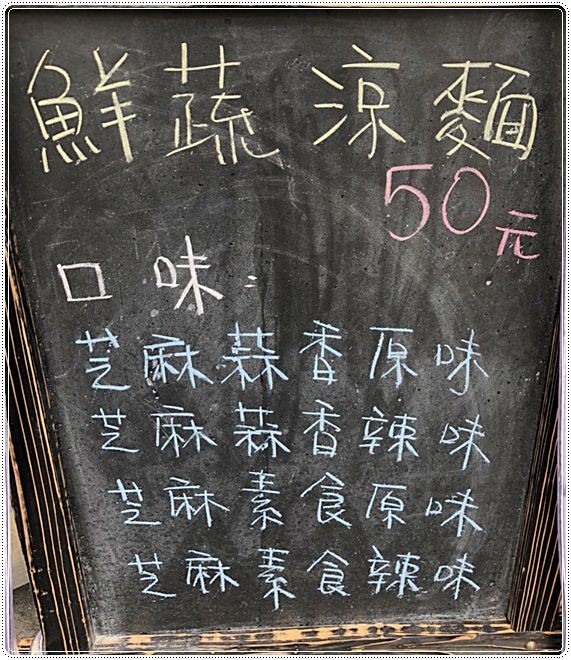 鮮蔬涼麵
50元
口味：
芝麻蒜香原味
芝麻蒜香辣味
芝麻素食原味
芝麻素食辣味